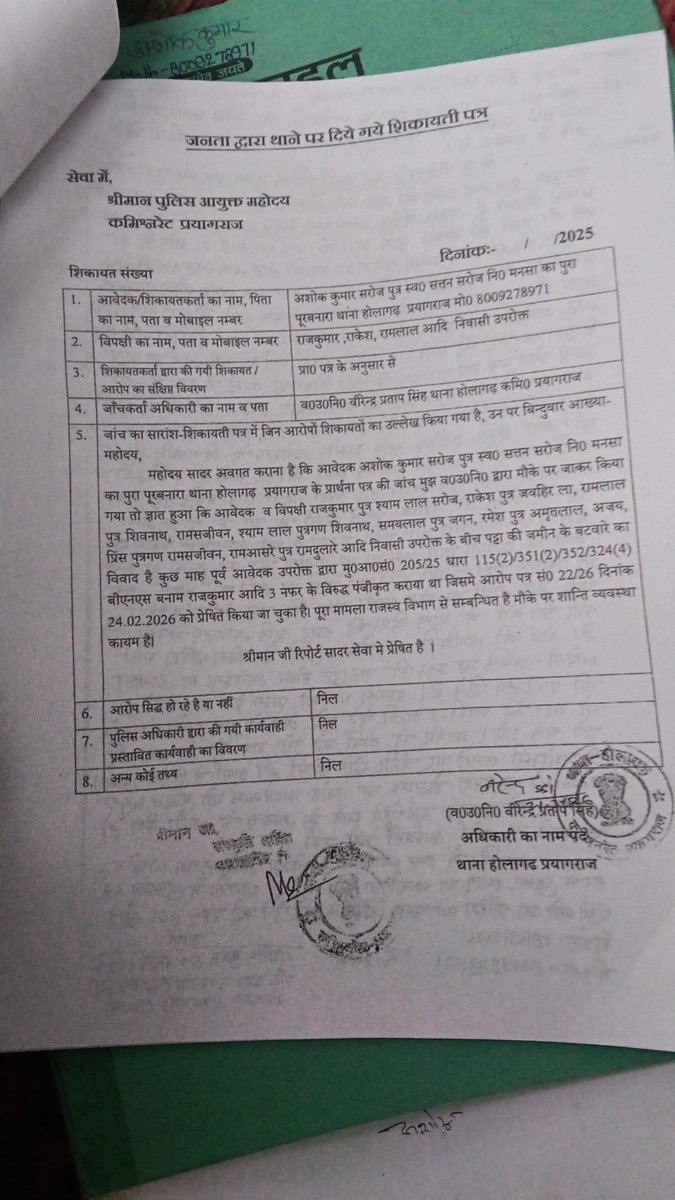 अशोक कुमार
Mo No - 8009278971
जनता द्वारा थाने पर दिये गये शिकायती पत्र
सेवा में,
श्रीमान पुलिस आयुक्त महोदय
कमिश्नरेट प्रयागराज
दिनांकः- / /2025
शिकायत संख्या
1. आवेदक/शिकायतकर्ता का नाम, पिता का नाम, पता व मोबाइल नम्बर
अशोक कुमार सरोज पुत्र स्व0 सत्तन सरोज नि0 मनसा का पुरा
पूरबनारा थाना होलागढ़ प्रयागराज मो0 8009278971
2. विपक्षी का नाम, पता व मोबाइल नम्बर
राजकुमार ,राकेश, रामलाल आदि निवासी उपरोक्त
3. शिकायतकर्ता द्वारा की गयी शिकायत /
आरोप का संक्षिप्त विवरण
प्रा0 पत्र के अनुसार से
4. जाँचकर्ता अधिकारी का नाम व पता
व0उ0नि0 वीरेन्द्र प्रताप सिंह थाना होलागढ़ कमि0 प्रयागराज
5. जांच का सारांश-शिकायती पत्र में जिन आरोपों शिकायतों का उल्लेख किया गया है, उन पर बिन्दुवार आख्या-
महोदय,
महोदय सादर अवगत कराना है कि आवेदक अशोक कुमार सरोज पुत्र स्व0 सत्तन सरोज नि0 मनसा
का पुरा पूरबनारा थाना होलागढ़ प्रयागराज के प्रार्थना पत्र की जांच मुझ व0उ0नि0 द्वारा मौके पर जाकर किया
गया तो ज्ञात हुआ कि आवेदक व विपक्षी राजकुमार पुत्र श्याम लाल सरोज, राकेश पुत्र जवहिर ला, रामलाल
पुत्र शिवनाथ, रामसजीवन, श्याम लाल पुत्रगण शिवनाथ, समयलाल पुत्र जगन, रमेश पुत्र अमृतलाल, अजय,
प्रिंस पुत्रगण रामसजीवन, रामआसरे पुत्र रामदुलारे आदि निवासी उपरोक्त के बीच पट्टा की जमीन के बटवारे का
विवाद है कुछ माह पूर्व आवेदक उपरोक्त द्वारा मु0आ0सं0 205/25 धारा 115(2)/351(2)/352/324(4)
बीएनएस बनाम राजकुमार आदि 3 नफर के विरुद्ध पंजीकृत कराया था जिसमे आरोप पत्र सं0 22/26 दिनांक
24.02.2026 को प्रेषित किया जा चुका है। पूरा मामला राजस्व विभाग से सम्बन्धित है मौके पर शान्ति व्यवस्था
कायम है।
श्रीमान जी रिपोर्ट सादर सेवा मे प्रेषित है ।
6. आरोप सिद्ध हो रहे है या नहीं
निल
7. पुलिस अधिकारी द्वारा की गयी कार्यवाही
प्रस्तावित कार्यवाही का विवरण
निल
8. अन्य कोई तथ्य
निल
(व0उ0नि0 वीरेन्द्र प्रताप सिंह)
अधिकारी का नाम पद
थाना होलागढ प्रयागराज
श्रीमान जी,
संस्तुति सहित
अशोक